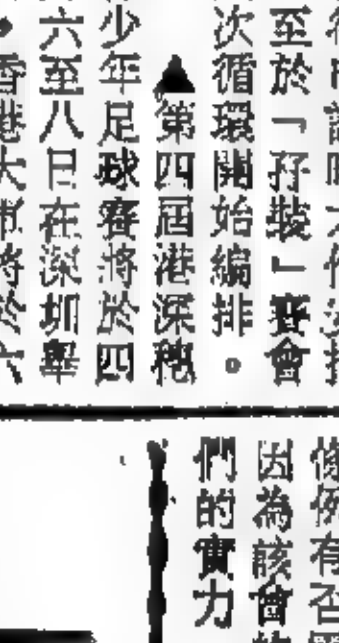 至於「孖裝」賽會
次循環開始編排。
▲第四屆港深穗
少年足球賽將於四
六至八日在深圳舉
香港大
將於六
有否
因為該會
們的實力